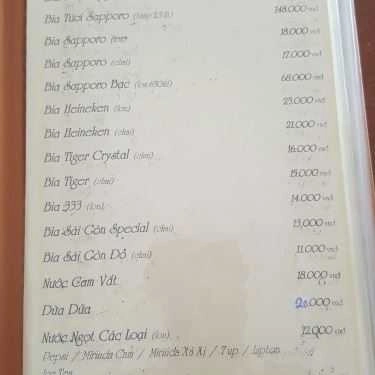 Bia Tươi Sapporo (tháp 2.5 lít) 148.000 vnđ
Bia Sapporo 18.000 vnđ
Bia Sapporo (chai) 17.000 vnđ
Bia Sapporo Bạc (lon 650ml) 68.000 vnđ
Bia Heineken (lon) 23.000 vnđ
Bia Heineken (chai) 21.000 vnđ
Bia Tiger Crystal (chai) 16.000 vnđ
Bia Tiger (chai) 15.000 vnđ
Bia 333 (lon) 14.000 vnđ
Bia Sài Gòn Special (chai) 13.000 vnđ
Bia Sài Gòn Đỏ (chai) 11.000 vnđ
Nước Cam Vắt 18.000 vnđ
Dừa Dứa 20.000 vnđ
Nước Ngọt Các Loại (lon) 12.000 vnđ
Pepsi / Mirinda Cam / Mirinda Xá Xị / 7up / Lipton